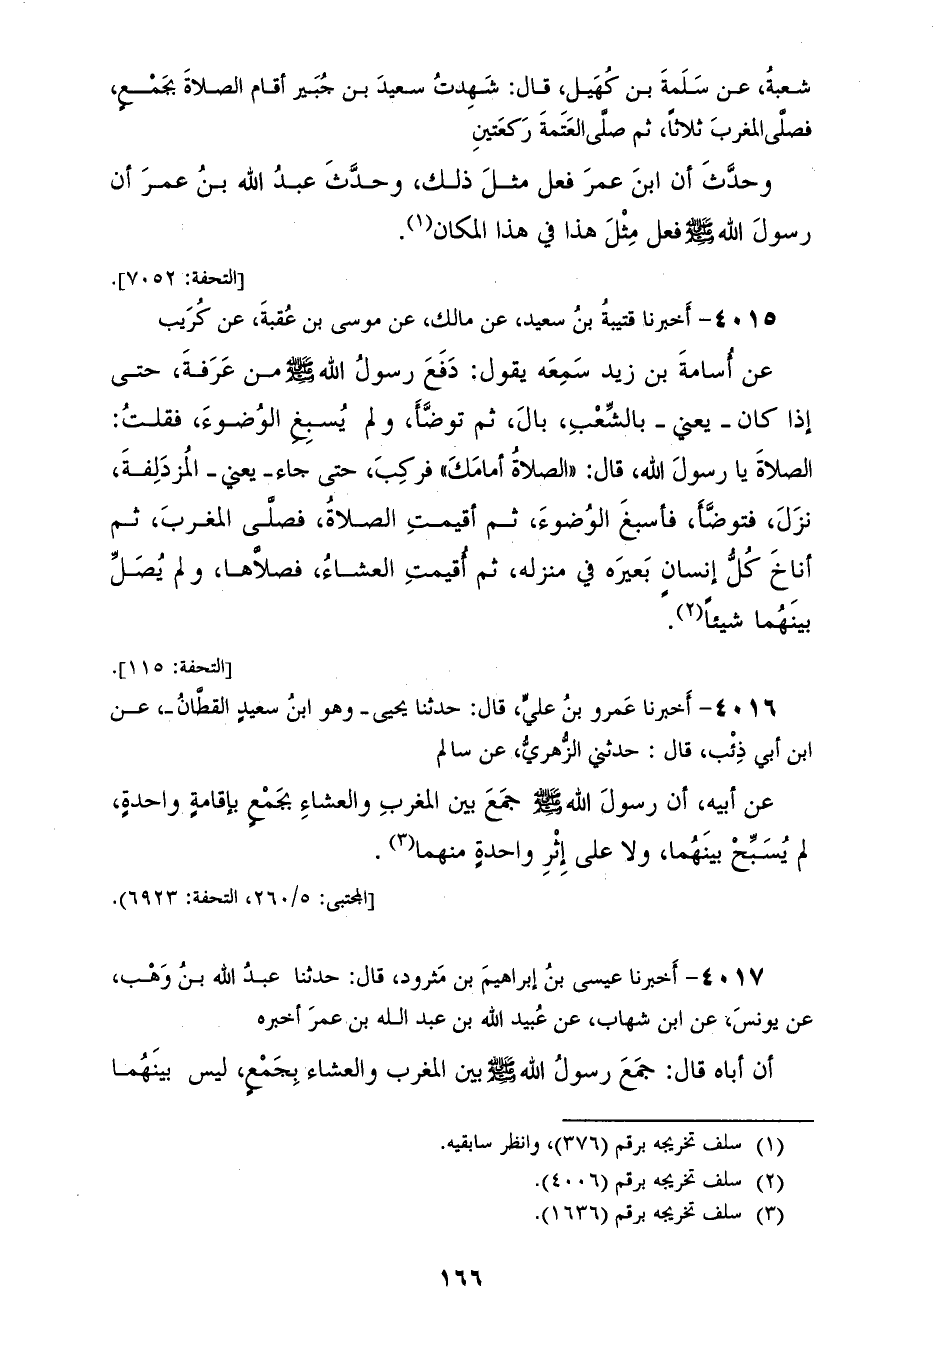 شعبةُ، عن سَلَمةَ بن كُهَيل، قال: شَهِدتُ سعيدَ بن جُبَير أقام الصلاةَ بجَمْعٍ،
فصلَّى المغربَ ثلاثاً، ثم صلَّى العَتَمةَ رَكعَتينِ
وحدَّثَ أن ابنَ عمرَ فعل مثلَ ذلك، وحدَّثَ عبدُ الله بنُ عمرَ أن
رسولَ الله ﷺ فعل مِثْلَ هذا في هذا المكان(١).
[التحفة: ٧٠٥٢].
٤٠١٥- أَخبرنا قتيبةُ بنُ سعيد، عن مالك، عن موسى بن عُقبةَ، عن كُرَيب
عن أُسامةَ بن زيد سَمِعَه يقول: دَفَعَ رسولُ الله ﷺ من عَرَفةَ، حتى
إذا كان - يعني - بالشِّعْبِ، بالَ، ثم توضَّأَ، ولم يُسبِغِ الوُضوءَ، فقلتُ:
الصلاةَ يا رسولَ الله، قال: «الصلاةُ أمامَكَ» فركِبَ، حتى جاء - يعني - المُزدَلِفةَ،
نزَلَ، فتوضَّأَ، فأسبغَ الوُضوءَ، ثم أقيمتِ الصلاةُ، فصلَّى المغربَ، ثم
أناخَ كُلُّ إنسانٍ بَعيرَه في منزله، ثم أُقيمتِ العشاءُ، فصلاَّها، ولم يُصَلِّ
بينَهُما شيئاً(٢).
[التحفة: ١١٥].
٤٠١٦- أَخبرنا عَمرو بنُ عليٍّ، قال: حدثنا يحيى - وهو ابنُ سعيدٍ القطَّانُ -، عن
ابن أبي ذِئْب، قال : حدثني الزُّهريُّ، عن سالم
عن أبيه، أن رسولَ الله ﷺ جمَعَ بين المغربِ والعشاءِ بجَمْعٍ بإقامةٍ واحدةٍ،
لم يُسَبِّحْ بينَهُما، ولا على إثْرِ واحدةٍ منهما(٣) .
[المجتبى: ٢٦٠/٥، التحفة: ٦٩٢٣).
٤٠١٧- أَخبرنا عيسى بنُ إبراهيمَ بن مَثرود، قال: حدثنا عبدُ الله بنُ وَهْب،
عن يونسَ، عن ابن شهاب، عن عُبيد الله بن عبد الله بن عمرَ أخبره
أن أباه قال: جمَعَ رسولُ الله ﷺ بين المغرب والعشاء بِجَمْعٍ، ليس بينَهُما
(١) سلف تخريجه برقم (٣٧٦)، وانظر سابقيه.
(٢) سلف تخريجه برقم (٤٠٠٦).
(٣) سلف تخريجه برقم (١٦٣٦).
١٦٦